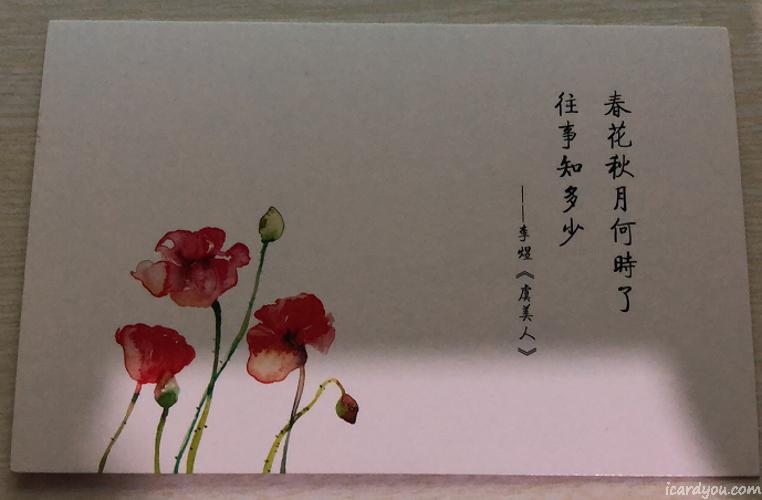 春花秋月何時了
往事知多少
——李煜《虞美人》
icardyou.com